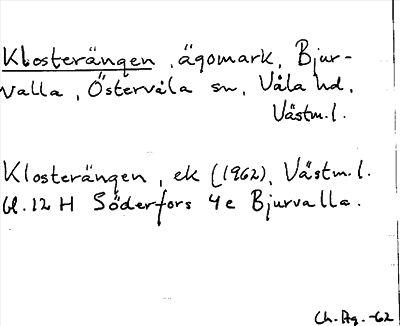 Klosterängen, ägomark, Bjur-
valla, Östervåla sn, Våla hd,
Västm.l.
Klosterängen, ek (1962), Västm.l.
bl. 12 H Söderfors 4e Bjurvalla.
Ch. Ag. -62